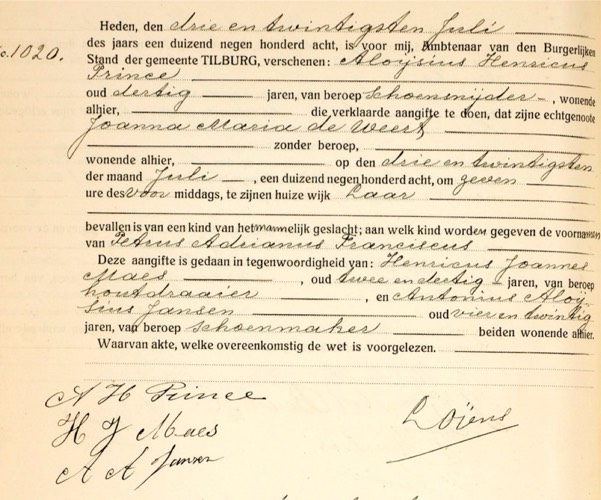 Heden, den drie en twintigsten Juli
No. 1020. des jaars een duizend negen honderd acht, is voor mij, Ambtenaar van den Burgerlijken
Stand der gemeente TILBURG, verschenen: Aloijsius Henricus
Prince
oud dertig jaren, van beroep schoensnijder, wonende
alhier, die verklaarde aangifte te doen, dat zijne echtgenoote
Joanna Maria de Weert,
zonder beroep,
wonende alhier, op den drie en twintigsten
der maand Juli, een duizend negen honderd acht, om zeven
ure des voor middags, te zijnen huize wijk Laar
bevallen is van een kind van het mannelijk geslacht; aan welk kind worden gegeven de voornamen
van Petrus Adrianus Franciscus
Deze aangifte is gedaan in tegenwoordigheid van: Henricus Joannes
Maes, oud twee en dertig jaren, van beroep
houtdraaier, en Antonius Aloÿ
sius Jansen oud vier en twintig
jaren, van beroep schoenmaker beiden wonende alhier.
Waarvan akte, welke overeenkomstig de wet is voorgelezen.
A H Prince
H J Maes
A A Jansen